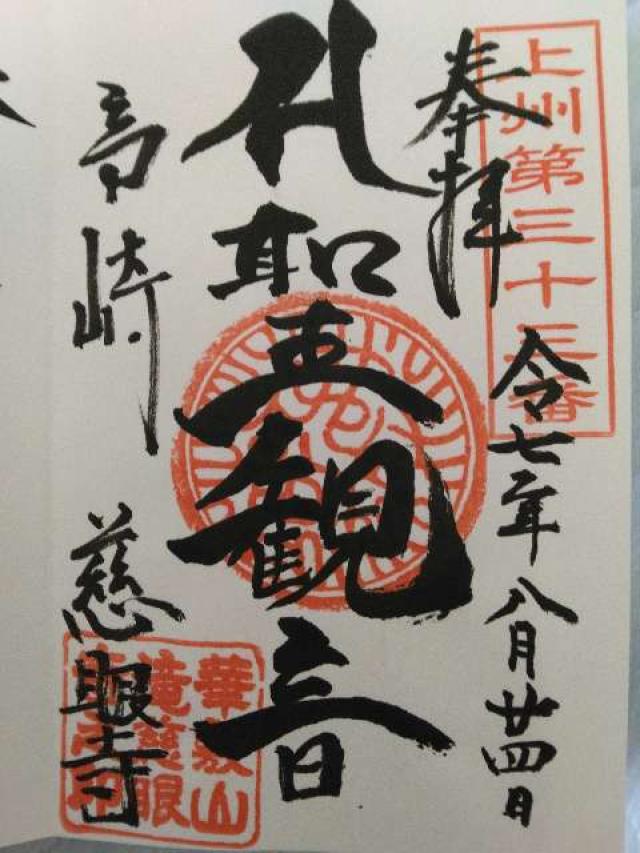 上州第三十三番
奉拝
令七年八月廿四日
聖観音
高崎
慈眼寺
華敷山
滝慈眼